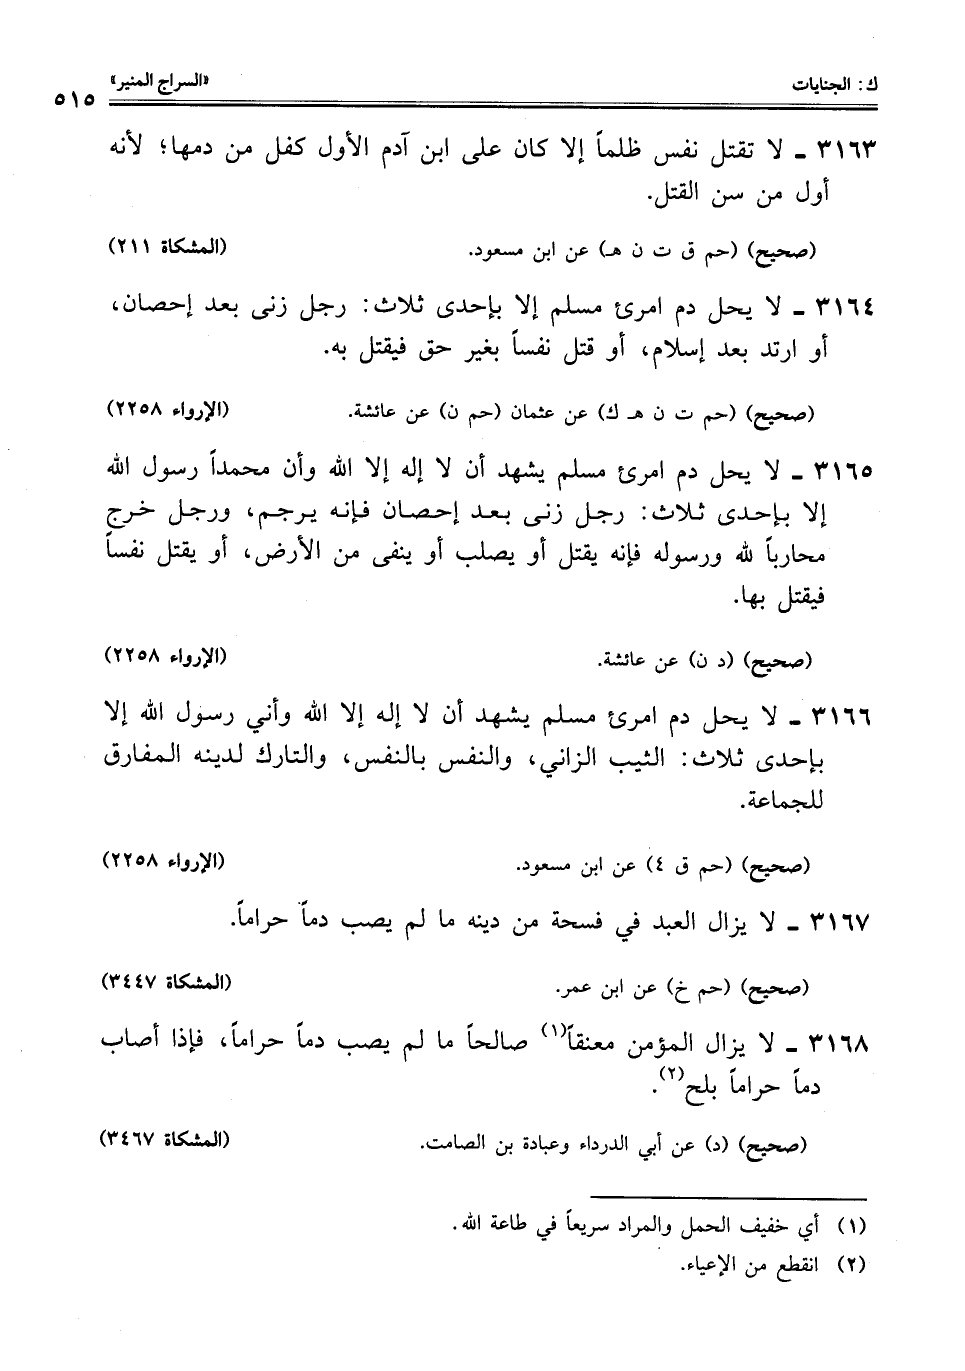 ك: الجنايات «السراج المنير» ٥١٥
٣١٦٣ ـ لا تقتل نفس ظلماً إلا كان على ابن آدم الأول كفل من دمها؛ لأنه
أول من سن القتل.
(صحيح) (حم ق ت ن هـ) عن ابن مسعود. (المشكاة ٢١١)
٣١٦٤ ـ لا يحل دم امرئ مسلم إلا بإحدى ثلاث: رجل زنى بعد إحصان،
أو ارتد بعد إسلام، أو قتل نفساً بغير حق فيقتل به.
(صحيح) (حم ت ن هـ ك) عن عثمان (حم ن) عن عائشة. (الإرواء ٢٢٥٨)
٣١٦٥ ـ لا يحل دم امرئ مسلم يشهد أن لا إله إلا الله وأن محمداً رسول الله
إلا بإحدى ثلاث: رجل زنى بعد إحصان فإنه يرجم، ورجل خرج
محارباً لله ورسوله فإنه يقتل أو يصلب أو ينفى من الأرض، أو يقتل نفساً
فيقتل بها.
(صحيح) (د ن) عن عائشة. (الإرواء ٢٢٥٨)
٣١٦٦ ـ لا يحل دم امرئ مسلم يشهد أن لا إله إلا الله وأني رسول الله إلا
بإحدى ثلاث: الثيب الزاني، والنفس بالنفس، والتارك لدينه المفارق
للجماعة.
(صحيح) (حم ق ٤) عن ابن مسعود. (الإرواء ٢٢٥٨)
٣١٦٧ ـ لا يزال العبد في فسحة من دينه ما لم يصب دماً حراماً.
(صحيح) (حم خ) عن ابن عمر. (المشكاة ٣٤٤٧)
٣١٦٨ ـ لا يزال المؤمن معنقاً(١) صالحاً ما لم يصب دماً حراماً، فإذا أصاب
دماً حراماً بلح(٢).
(صحيح) (د) عن أبي الدرداء وعبادة بن الصامت. (المشكاة ٣٤٦٧)
(١) أي خفيف الحمل والمراد سريعاً في طاعة الله.
(٢) انقطع من الإعياء.